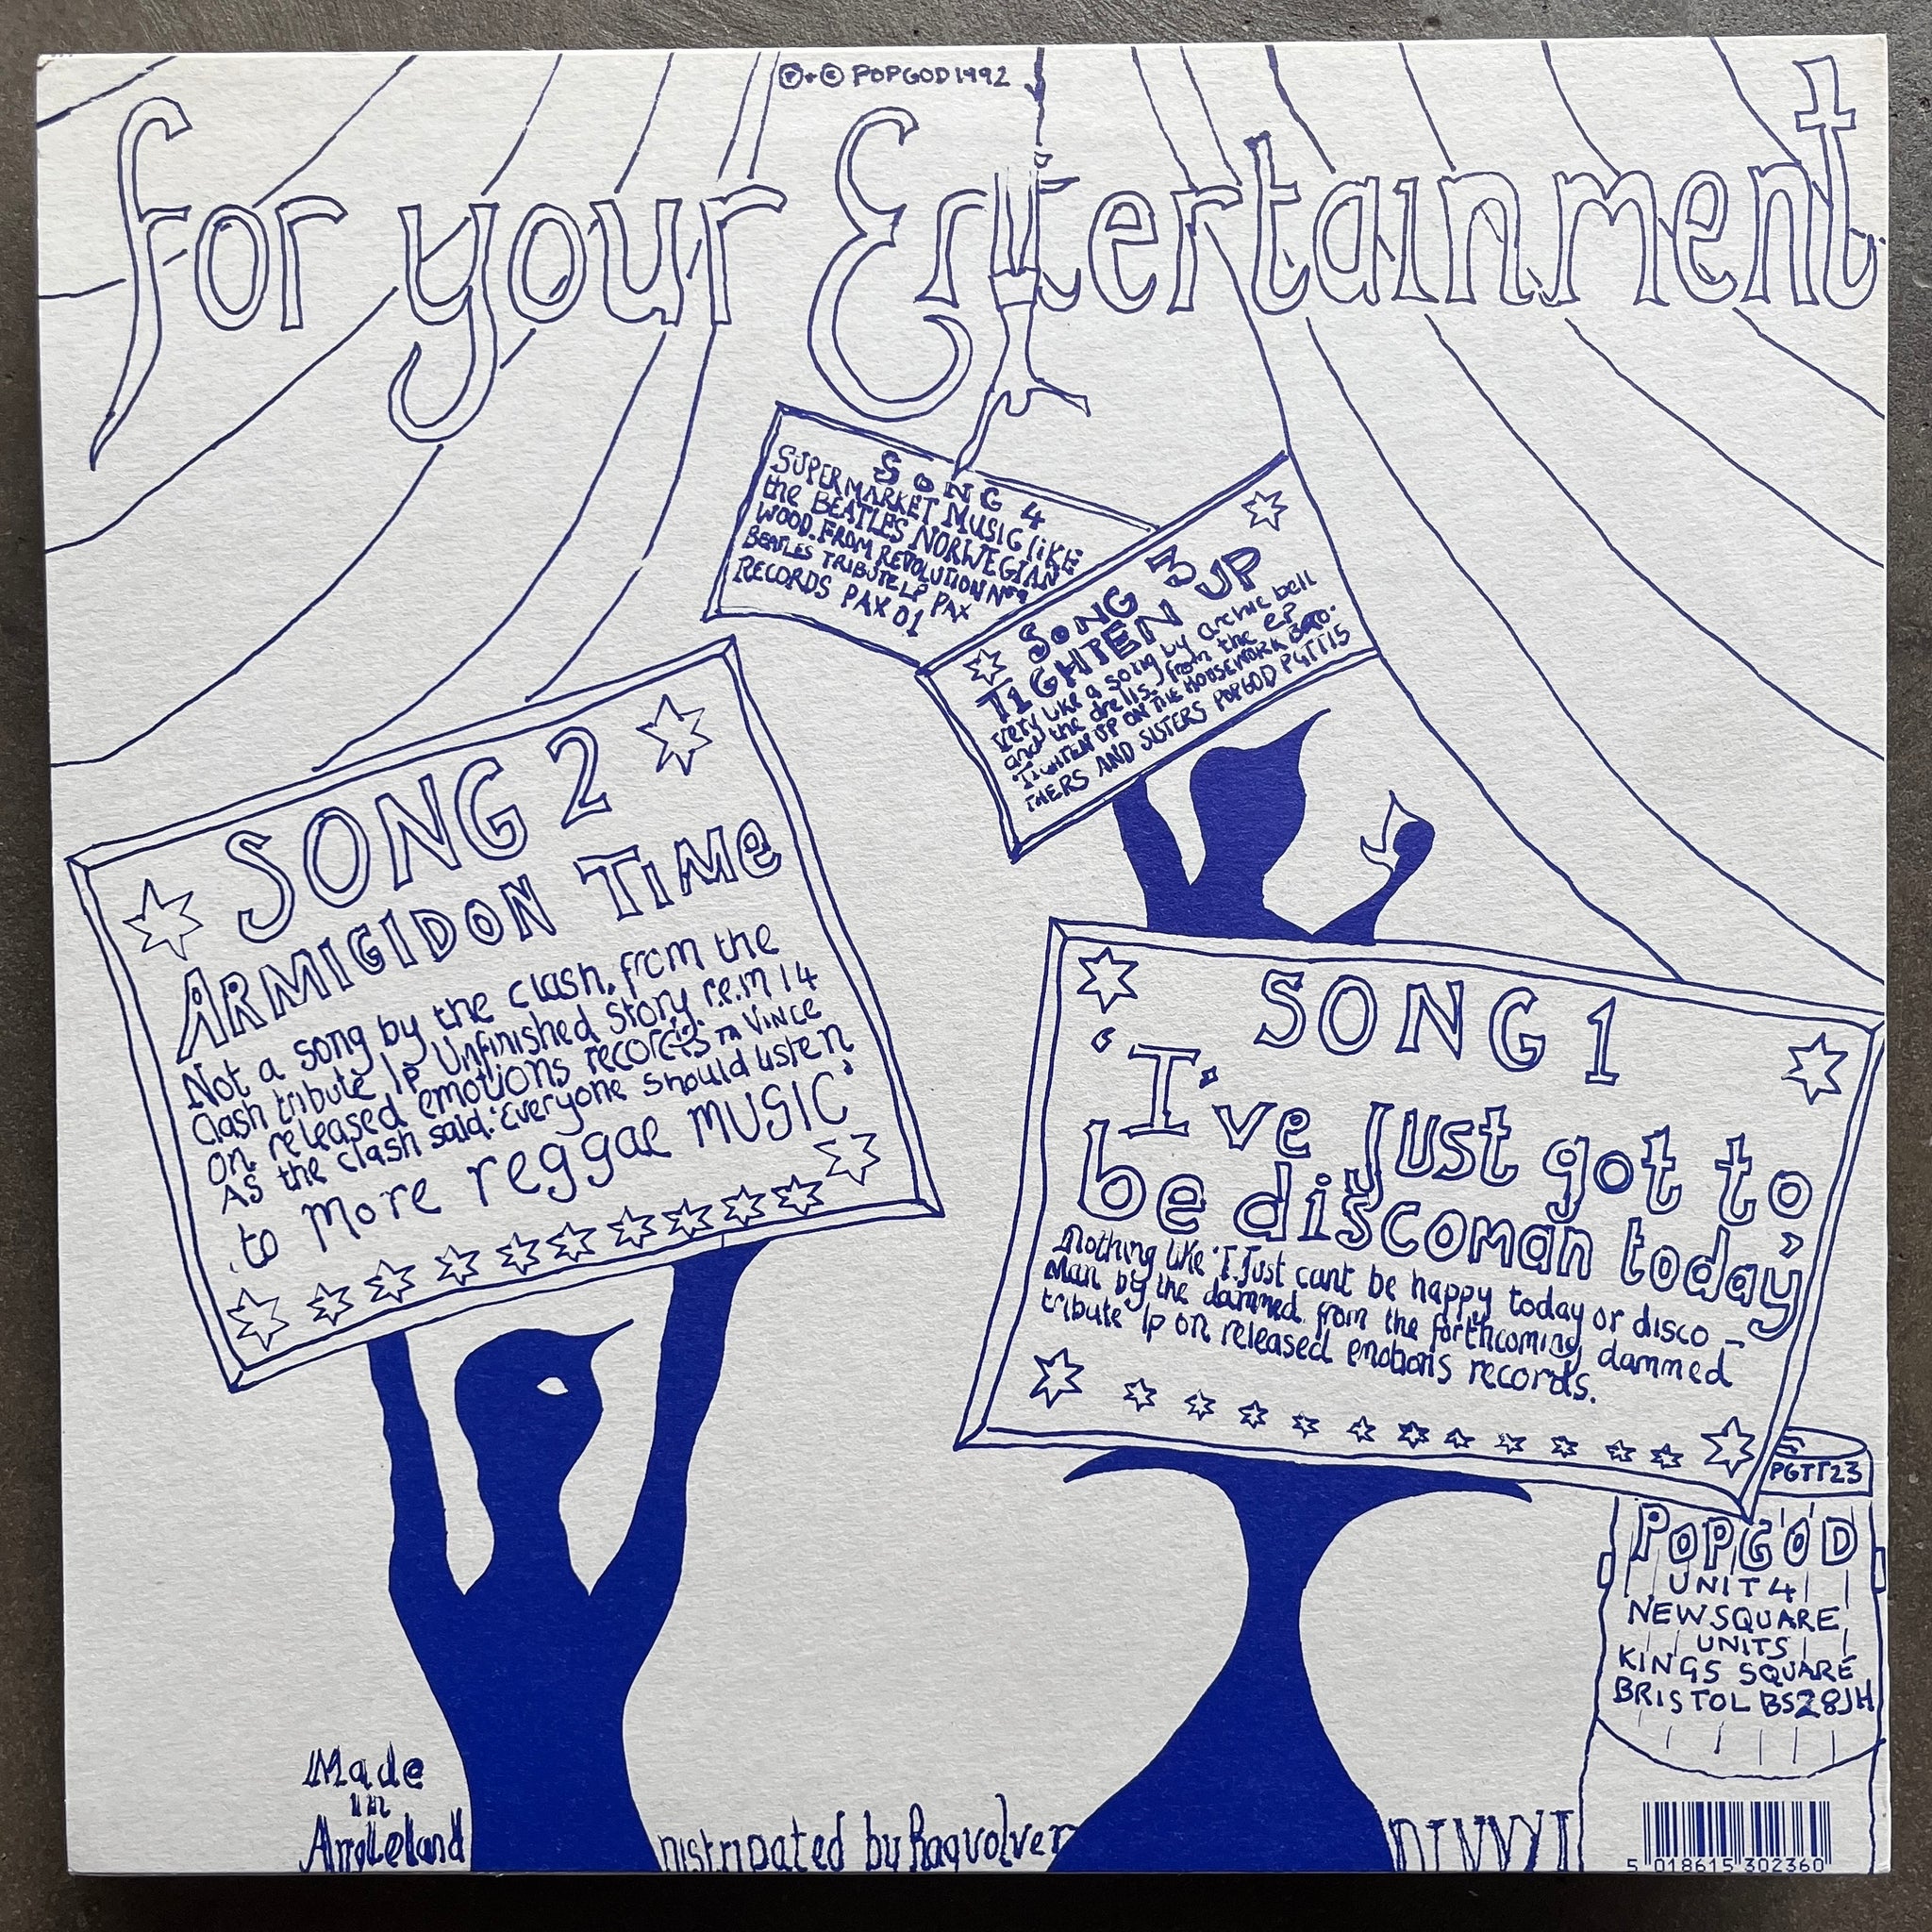 Ⓟ+© POPGOD 1992
for your Entertainment
SONG 4
SUPERMARKET MUSIC LIKE
the BEATLES NORWEGIAN
WOOD. FROM REVOLUTION No 9
BEATLES TRIBUTE LP PAX
RECORDS PAX 01
SONG 3
TIGHTEN UP
very like a song by archie bell
and the drells. from the EP
'TIGHTEN UP ON THE HOUSEWORK BRO-
THERS AND SISTERS POPGOD PGTT15
SONG 2
ARMIGIDON TiMe
Not a song by the clash. from the
clash tribute lp Unfinished Story. r.e.m 14
on released emotions records Ta VINCE
AS the clash said: 'Everyone should listen
to More reggae MUSIC'
SONG 1
'I've Just got to
be discoman today'
Nothing like 'I Just cant be happy today or disco –
Man by the dammed. from the forthcoming dammed
tribute lp on released emotions records.
PGTT23
POPGOD
UNIT 4
NEW SQUARE
UNITS
KINGS SQUARE
BRISTOL BS2 8JH
Made
in
by Raqvolver
5 018615 302360